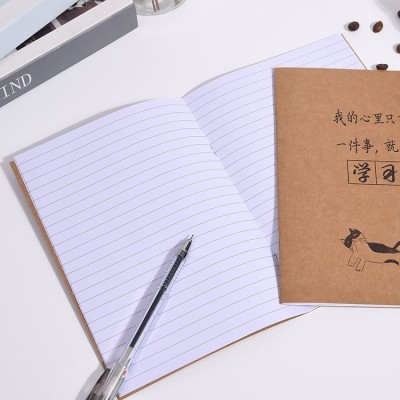 IND
我的心里只
一件事，就
学习